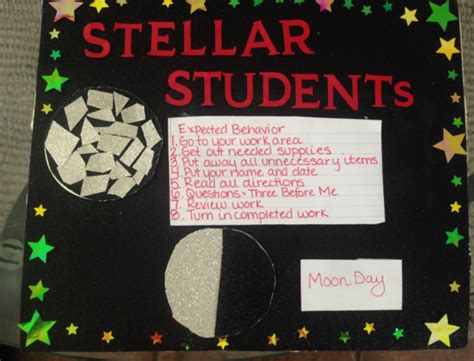 STELLAR
STUDENTs
Expected Behavior
1. Go to your work area
2. Get out needed supplies
3. Put away all unnecessary items
4. Put your name and date
5. Read all directions
6. Questions = Three Before Me
7. Review work
8. Turn in completed work
Moon Day